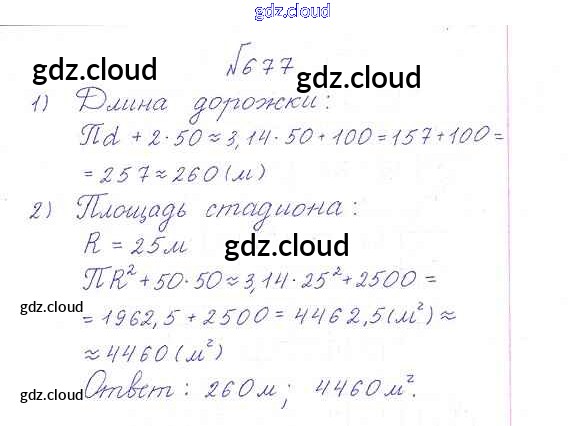 gdz.cloud
№677
gdz.cloud gdz.cloud
1) Длина дорожки:
Пd + 2·50 ≈ 3,14·50 + 100 = 157 + 100 =
= 257 ≈ 260 (м)
2) Площадь стадиона:
R = 25м
gdz.cloud
ПR² + 50·50 ≈ 3,14·25² + 2500 =
gdz.cloud
= 1962,5 + 2500 = 4462,5 (м²) ≈
≈ 4460 (м²)
gdz.cloud
Ответ: 260м; 4460м².